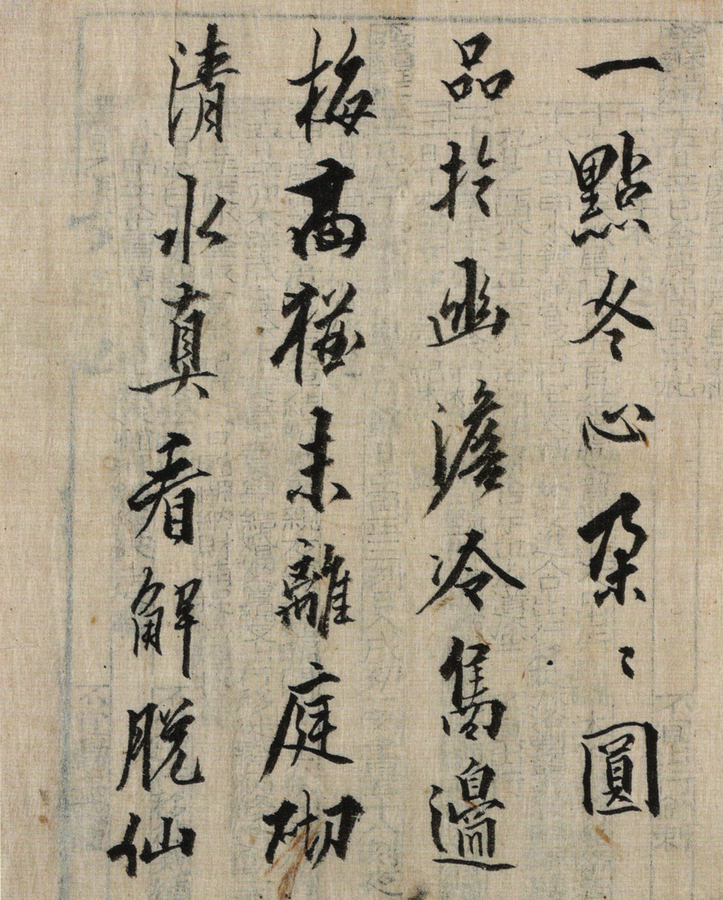 一點冬心朶〻圓
品於幽澹冷雋邊
梅高猶未離庭砌
清水真看解脫仙